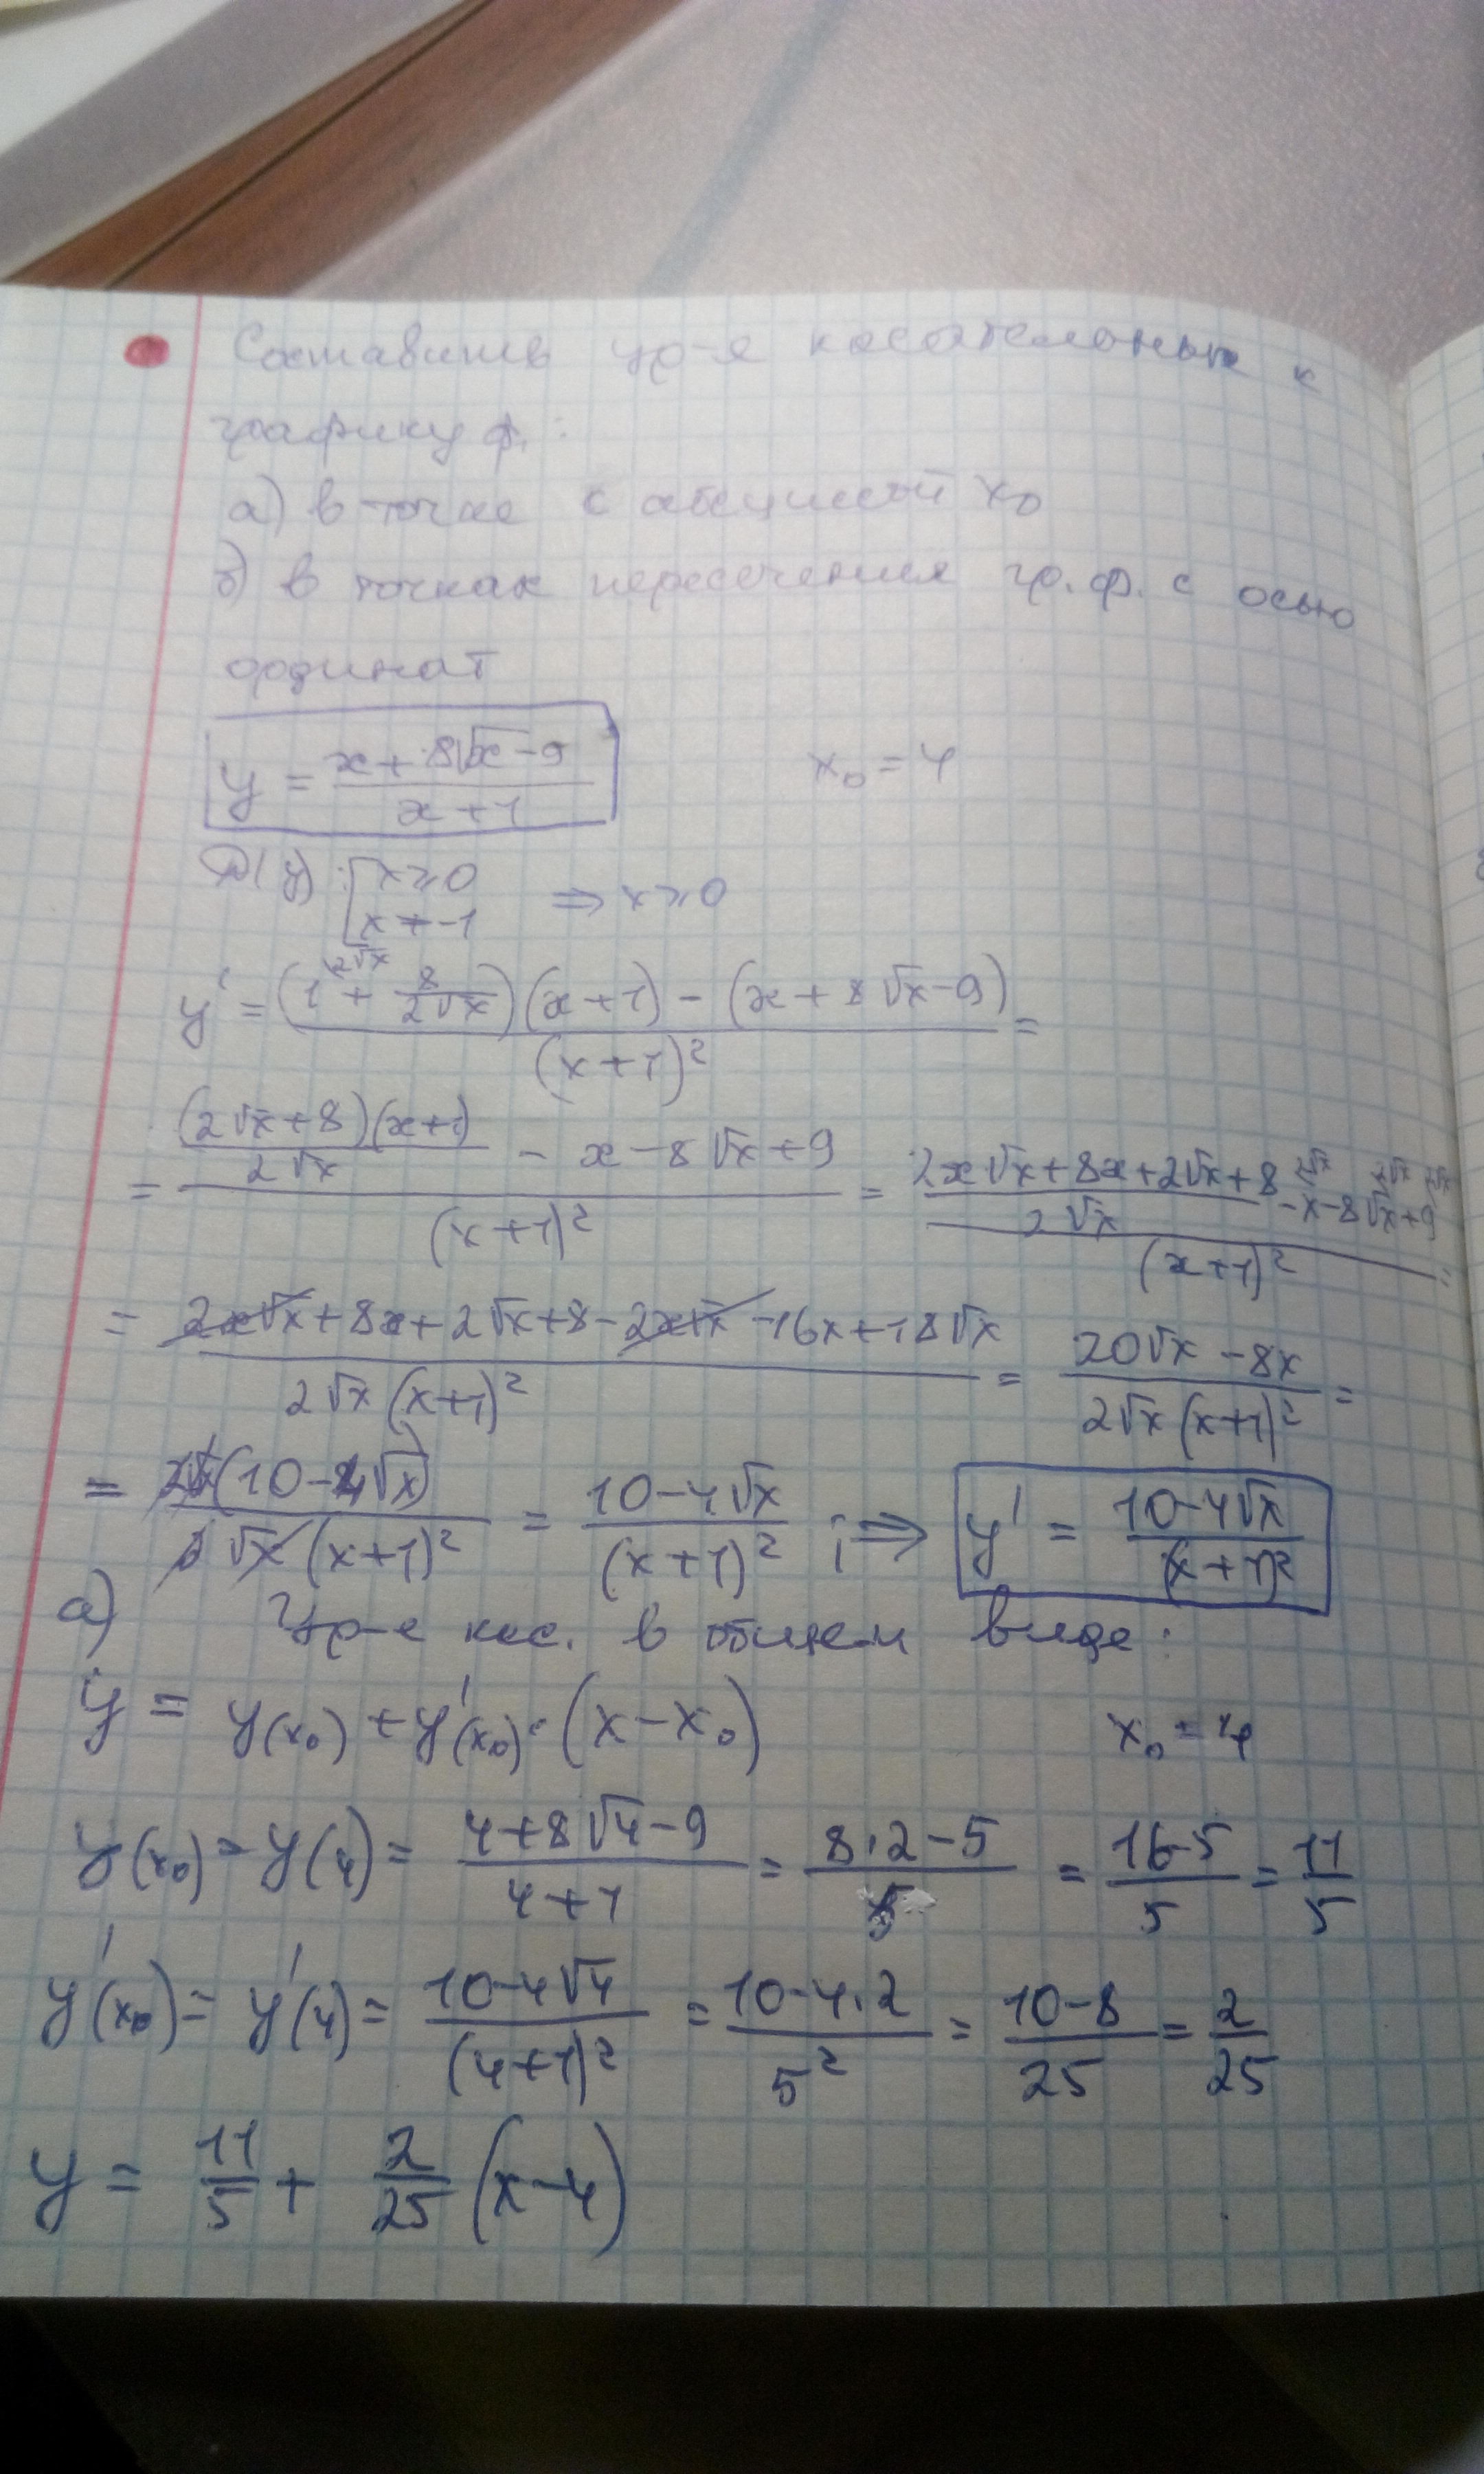 Составить ур-е касательных к
графику ф.:
а) в точке с абсциссой x₀
б) в точках пересечения гр. ф. с осью
ординат
y = (x + 8√x - 9)/(x + 1)    x₀ = 4
D(y): [x ≥ 0
x ≠ -1    ⇒ x ≥ 0
y' = ((1 + 8/(2√x))(x+1) - (x + 8√x - 9))/(x+1)² =
= ((2√x+8)(x+1)/(2√x) - x - 8√x + 9)/(x+1)² = ((2x√x + 8x + 2√x + 8)/(2√x) - x - 8√x + 9)/(x+1)² =
= (2x√x + 8x + 2√x + 8 - 2x√x - 16x + 18√x)/(2√x(x+1)²) = (20√x - 8x)/(2√x(x+1)²) =
= 2√x(10 - 4√x)/(2√x(x+1)²) = (10 - 4√x)/(x+1)² ; ⇒ y' = (10 - 4√x)/(x+1)²
а) Ур-е кас. в общем виде:
y = y(x₀) + y'(x₀)·(x - x₀)    x₀ = 4
y(x₀) = y(4) = (4 + 8√4 - 9)/(4+1) = (8·2 - 5)/5 = (16-5)/5 = 11/5
y'(x₀) = y'(4) = (10 - 4√4)/(4+1)² = (10 - 4·2)/5² = (10 - 8)/25 = 2/25
y = 11/5 + 2/25 (x - 4)